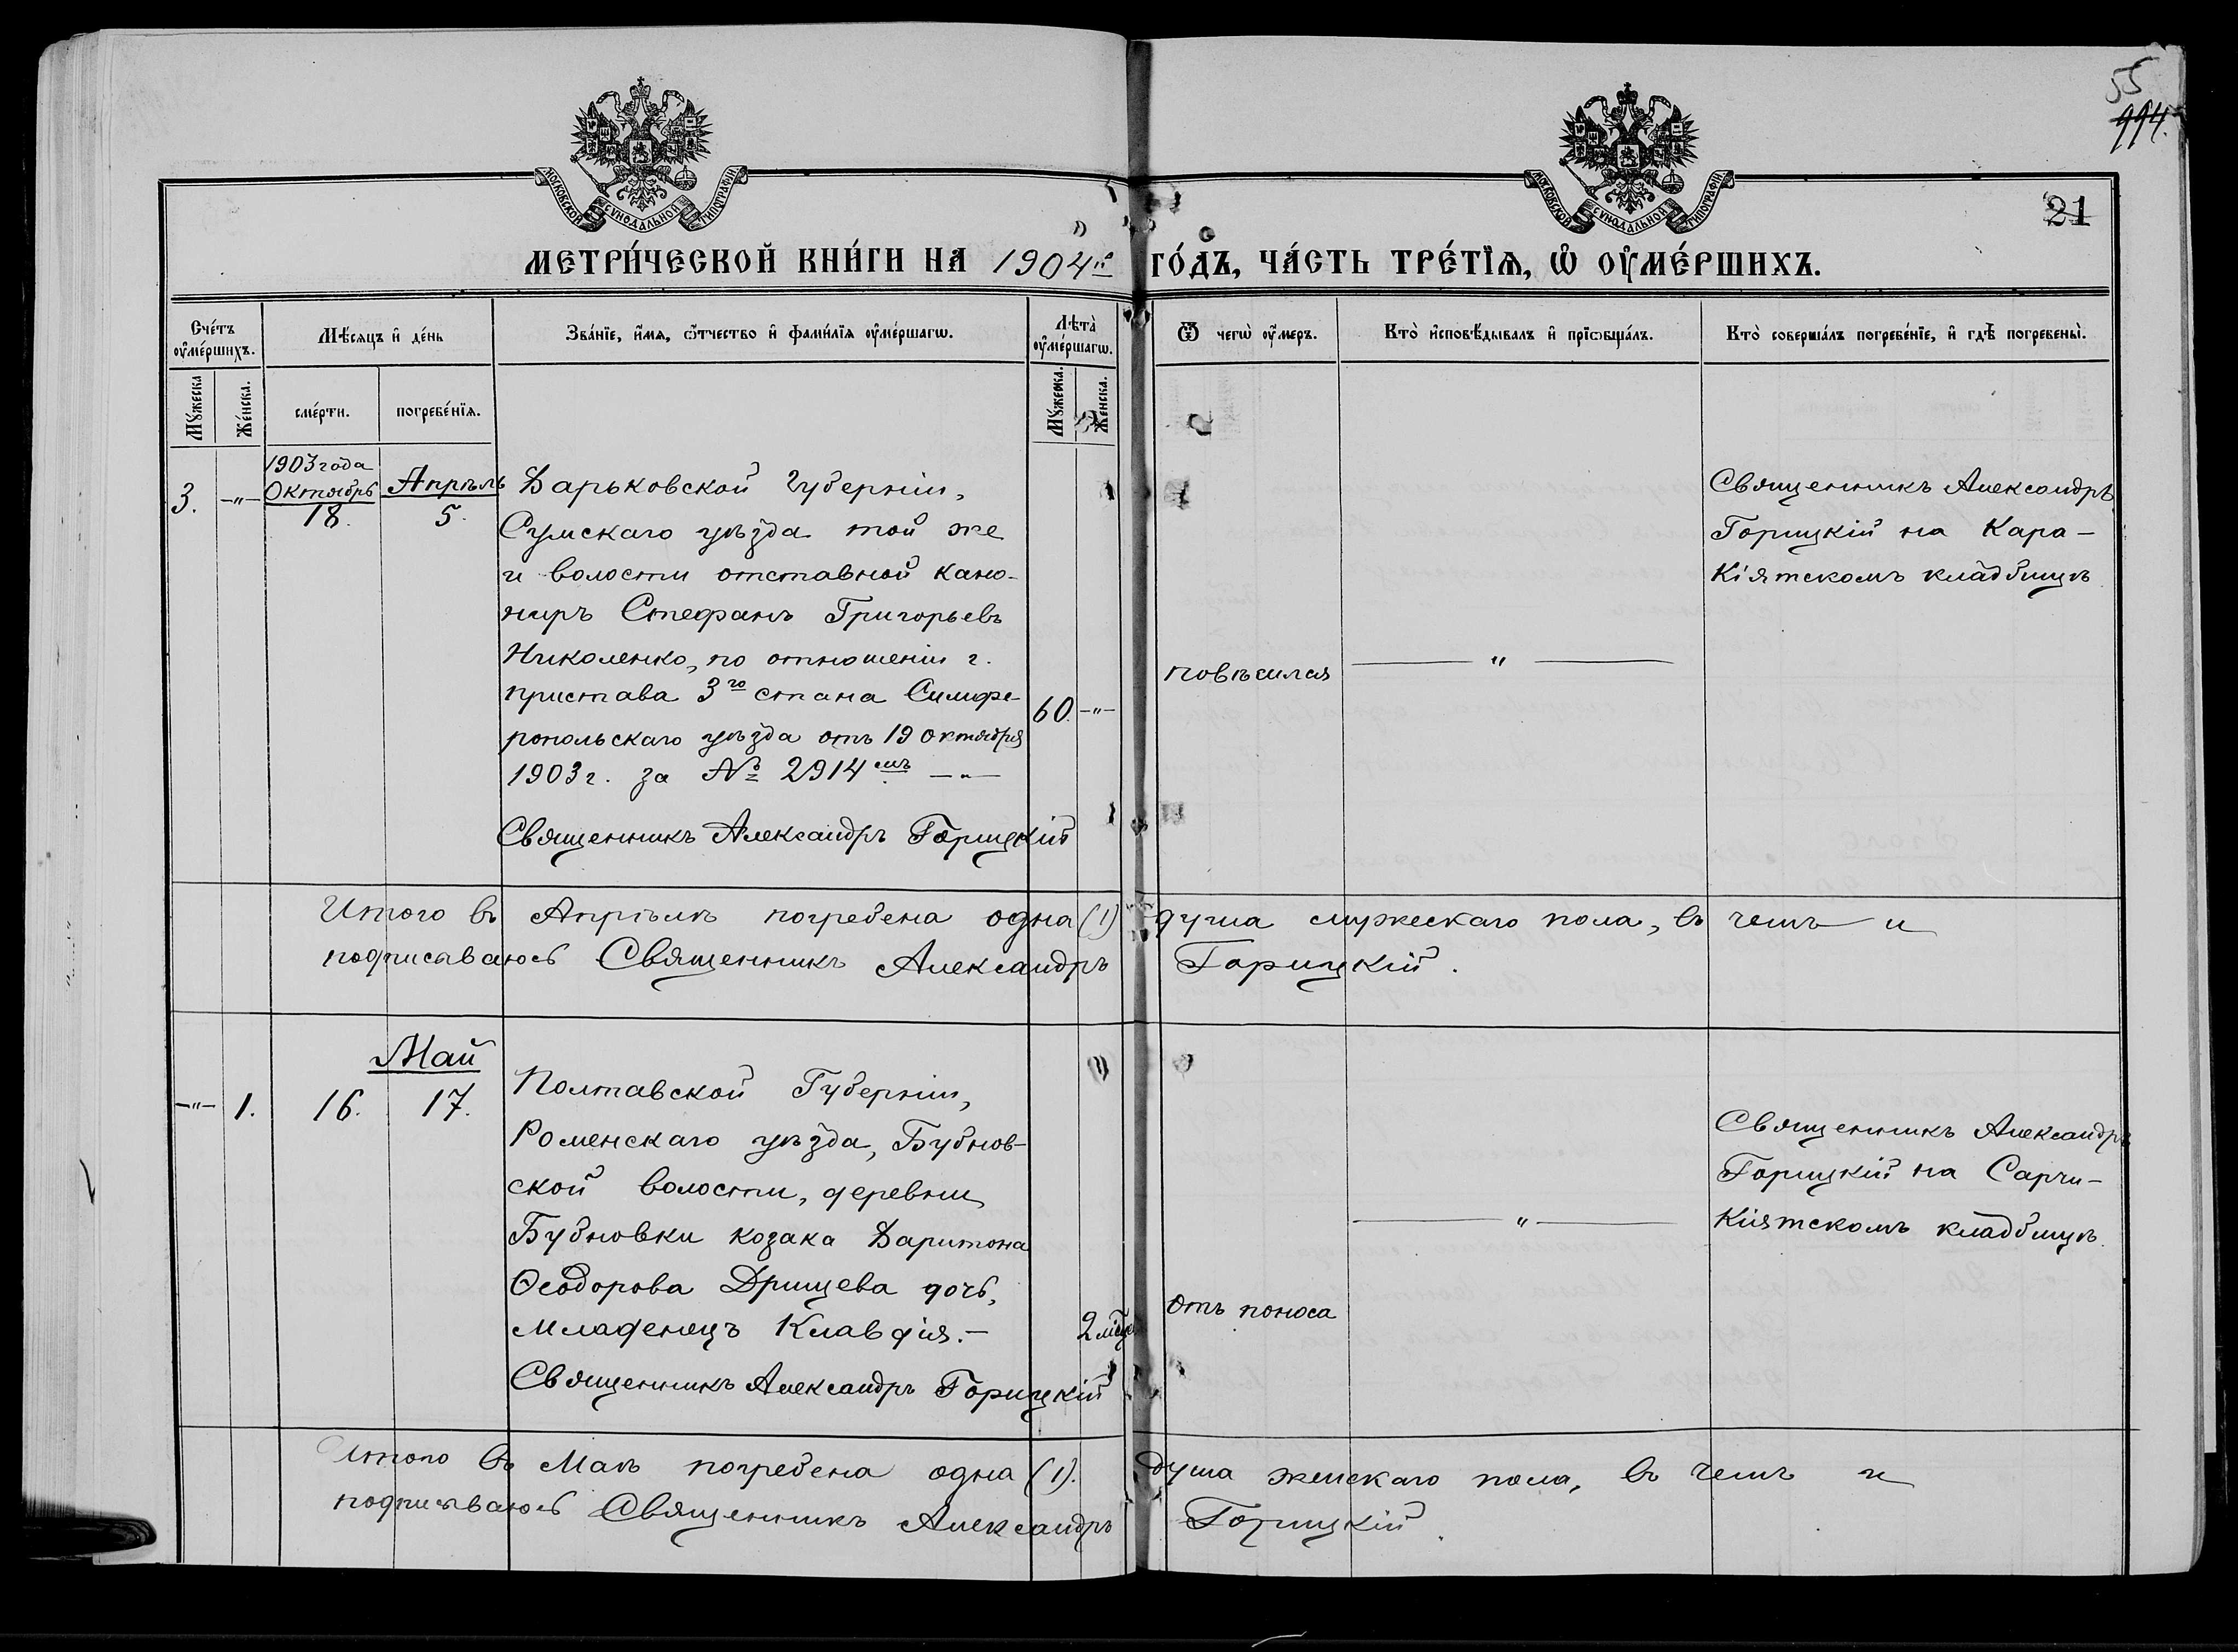 55
994.
21
МОСКОВСКОЙ СѴНОДАЛЬНОЙ ТИПОГРАФІИ
МОСКОВСКОЙ СѴНОДАЛЬНОЙ ТИПОГРАФІИ
МЕТРИ́ЧЕСКОЙ КНИ́ГИ НА 1904й ГО́ДЪ, ЧА́СТЬ ТРЕ́ТЇѦ, Ѡ҆ ОУ҆МЕ́РШИХЪ.
Сче́тъ оу҆ме́ршихъ.
Мѣ́сѧцъ и҆ де́нь
Зва́нїе, и҆́мѧ, ѻ҆́тчество и҆ фами́лїѧ оу҆ме́ршагѡ.
Лѣта̀ оу҆ме́ршагѡ.
Ѿ чегѡ̀ оу҆́меръ.
Кто̀ и҆сповѣ́дывалъ и҆ прїѡбща́лъ.
Кто̀ соверша́лъ погребе́нїе, и҆ гдѣ̀ погребены̀.
Мꙋ́жеска
Же́нска.
сме́рти.
погребе́нїѧ.
Мꙋ́жеска.
Же́нска.
1903 года
Октябрь
18.
Апрѣль
5.
3. -"-
Харьковской губерніи,
Сумскаго уѣзда той же
и волости отставной кано-
ниръ Стефанъ Григорьевъ
Николенко, по отношенію г.
пристава 3го стана Симфе-
ропольскаго уѣзда отъ 19 октября
1903 г. за № 2914 емъ -"-
Священникъ Александръ Горицкій
60. -"-
повѣсился
"
Священникъ Александръ
Горицкій на Кара-
Кіятскомъ кладбищѣ
Итого въ Апрѣлѣ погребена одна (1) душа мужескаго пола, въ чемъ и
подписываюсь Священникъ Александръ Горицкій.
Май
-"- 1. 16. 17.
Полтавской Губерніи,
Роменскаго уѣзда, Бубнов-
ской волости, деревни
Бубновки козака Харитона
Ѳеодорова Дрищева дочь,
младенецъ Клавдія.-
Священникъ Александръ Горицкій
2 мѣся
отъ поноса
"
Священникъ Александръ
Горицкій на Сарчи-
Кіятскомъ кладбищѣ.
Итого въ Маѣ погребена одна (1). душа женскаго пола, въ чемъ и
подписываюсь Священникъ Александръ Горицкій.